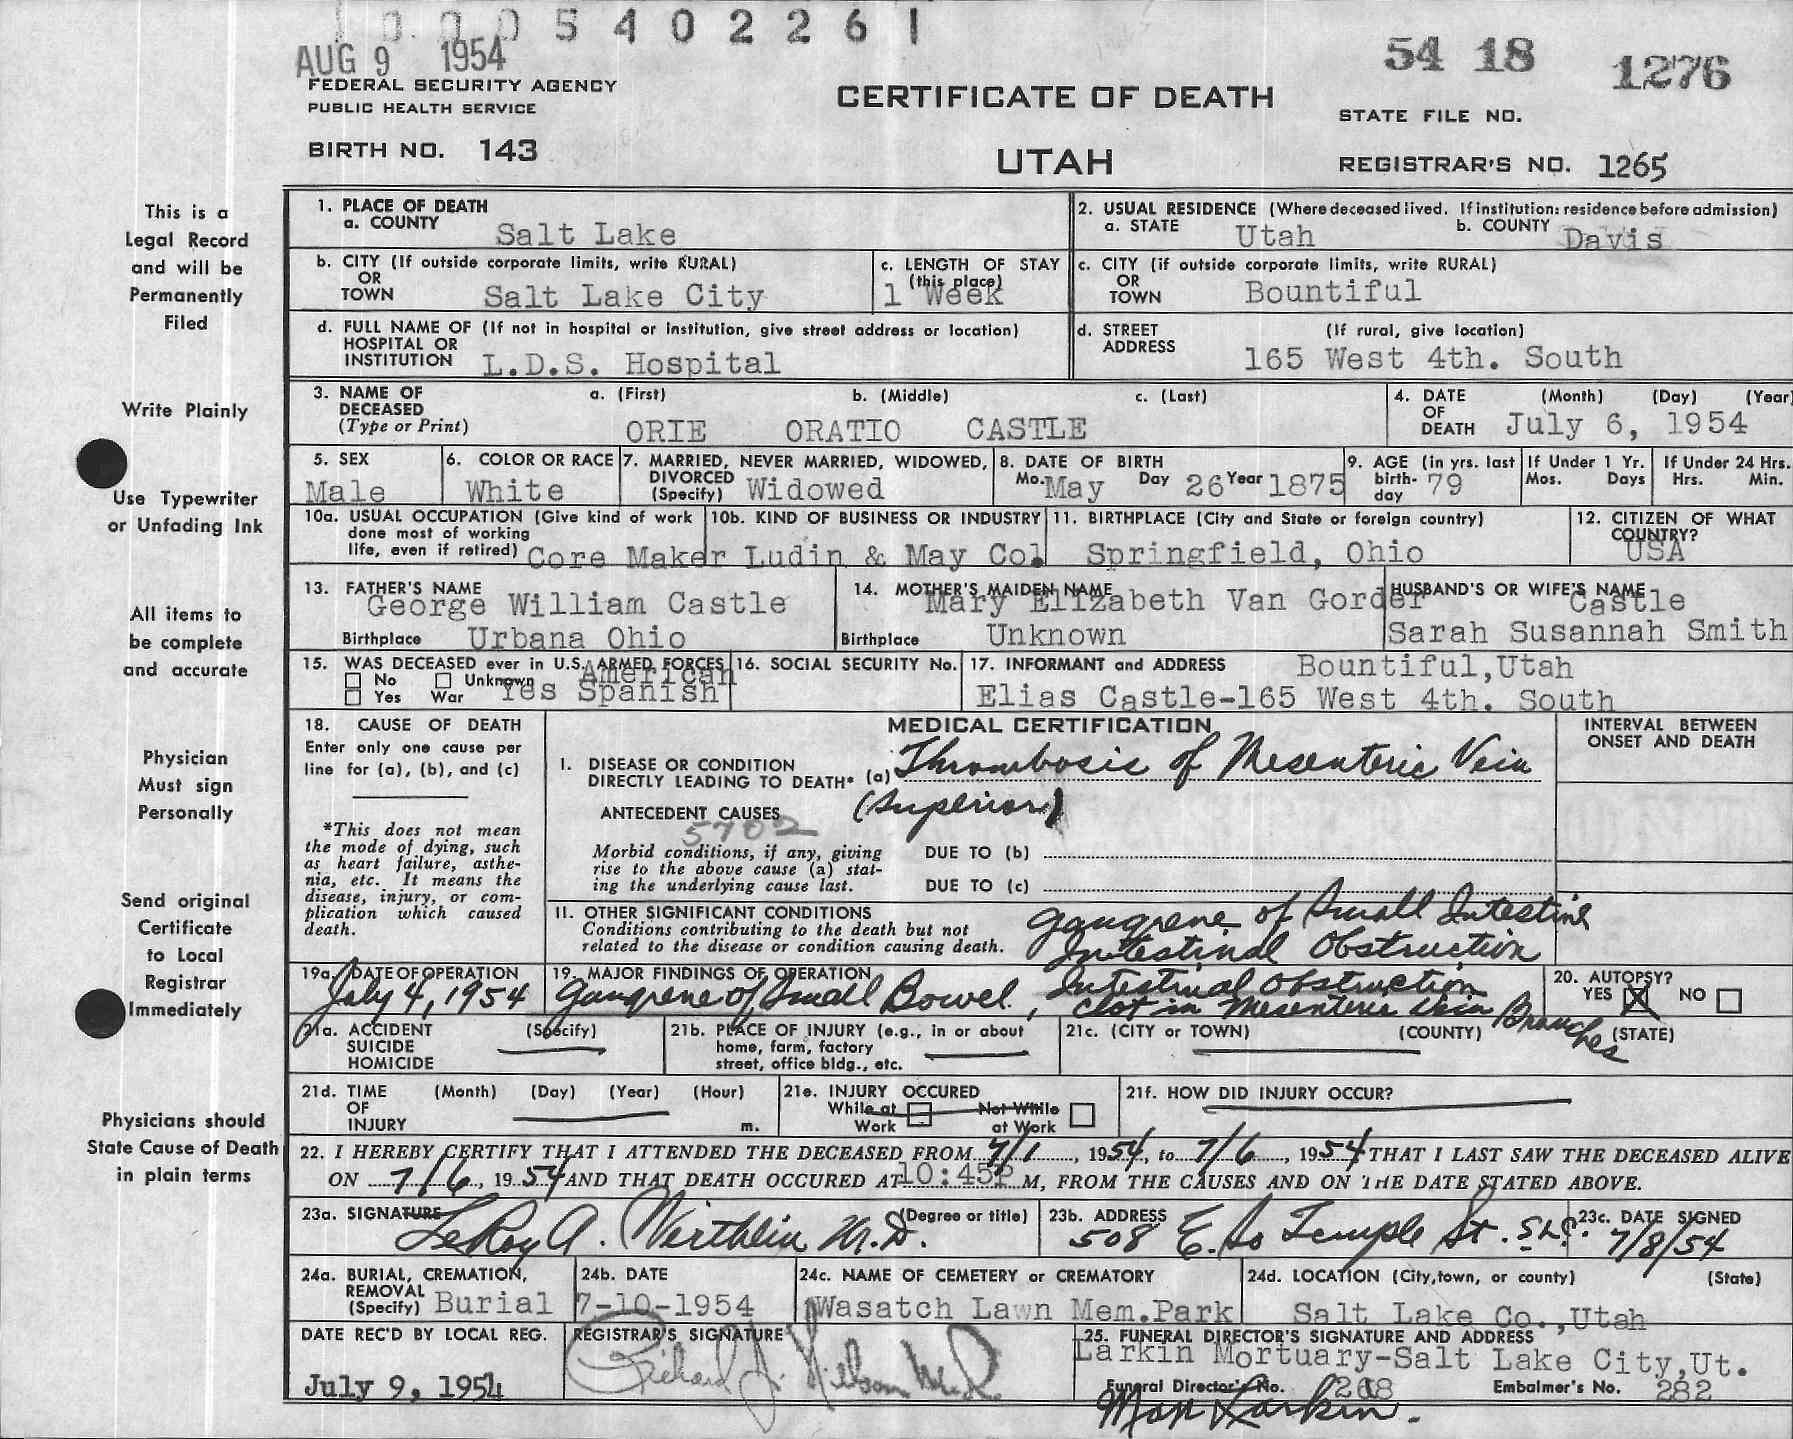 0005402261
AUG 9 1954
54 18 1276
FEDERAL SECURITY AGENCY
PUBLIC HEALTH SERVICE
CERTIFICATE OF DEATH
STATE FILE NO.
BIRTH NO. 143
UTAH
REGISTRAR'S NO. 1265
This is a
Legal Record
and will be
Permanently
Filed
Write Plainly
Use Typewriter
or Unfading Ink
All items to
be complete
and accurate
Physician
Must sign
Personally
Send original
Certificate
to Local
Registrar
Immediately
Physicians should
State Cause of Death
in plain terms
1. PLACE OF DEATH
a. COUNTY Salt Lake
2. USUAL RESIDENCE (Where deceased lived. If institution: residence before admission)
a. STATE Utah b. COUNTY Davis
b. CITY (If outside corporate limits, write RURAL)
OR
TOWN Salt Lake City
c. LENGTH OF STAY
(this place)
1 Week
c. CITY (if outside corporate limits, write RURAL)
OR
TOWN Bountiful
d. FULL NAME OF (If not in hospital or institution, give street address or location)
HOSPITAL OR
INSTITUTION L.D.S. Hospital
d. STREET (If rural, give location)
ADDRESS 165 West 4th. South
3. NAME OF a. (First) b. (Middle) c. (Last)
DECEASED
(Type or Print) ORIE ORATIO CASTLE
4. DATE (Month) (Day) (Year)
OF
DEATH July 6, 1954
5. SEX
Male
6. COLOR OR RACE
White
7. MARRIED, NEVER MARRIED, WIDOWED,
DIVORCED
(Specify) Widowed
8. DATE OF BIRTH
Mo. May Day 26 Year 1875
9. AGE (in yrs. last
birth-
day 79
If Under 1 Yr.
Mos. Days
If Under 24 Hrs.
Hrs. Min.
10a. USUAL OCCUPATION (Give kind of work
done most of working
life, even if retired) Core Maker
10b. KIND OF BUSINESS OR INDUSTRY
Ludin & May Co.
11. BIRTHPLACE (City and State or foreign country)
Springfield, Ohio
12. CITIZEN OF WHAT
COUNTRY?
USA
13. FATHER'S NAME
George William Castle
Birthplace Urbana Ohio
14. MOTHER'S MAIDEN NAME
Mary Elizabeth Van Gorder
Birthplace Unknown
HUSBAND'S OR WIFE'S NAME
Castle
Sarah Susannah Smith
15. WAS DECEASED ever in U.S. ARMED FORCES
No Unknown American
Yes War Yes Spanish
16. SOCIAL SECURITY No.
17. INFORMANT and ADDRESS Bountiful,Utah
Elias Castle-165 West 4th. South
18. CAUSE OF DEATH
Enter only one cause per
line for (a), (b), and (c)
*This does not mean
the mode of dying, such
as heart failure, asthe-
nia, etc. It means the
disease, injury, or com-
plication which caused
death.
MEDICAL CERTIFICATION
INTERVAL BETWEEN
ONSET AND DEATH
I. DISEASE OR CONDITION
DIRECTLY LEADING TO DEATH* (a) Thrombosis of Mesenteric Vein
(Superior)
ANTECEDENT CAUSES
5702
Morbid conditions, if any, giving
rise to the above cause (a) stat-
ing the underlying cause last.
DUE TO (b)
DUE TO (c)
II. OTHER SIGNIFICANT CONDITIONS
Conditions contributing to the death but not
related to the disease or condition causing death.
Gangrene of Small Intestine
Intestinal Obstruction
19a. DATE OF OPERATION
July 4, 1954
19. MAJOR FINDINGS OF OPERATION
Gangrene of Small Bowel, Intestinal Obstruction
Clot in Mesenteric Vein Branches
20. AUTOPSY?
YES X NO
21a. ACCIDENT (Specify)
SUICIDE
HOMICIDE
21b. PLACE OF INJURY (e.g., in or about
home, farm, factory
street, office bldg., etc.
21c. (CITY or TOWN) (COUNTY) (STATE)
21d. TIME (Month) (Day) (Year) (Hour)
OF
INJURY m.
21e. INJURY OCCURED
While at Not While
Work at Work
21f. HOW DID INJURY OCCUR?
22. I HEREBY CERTIFY THAT I ATTENDED THE DECEASED FROM 7/1, 1954, to 7/6, 1954 THAT I LAST SAW THE DECEASED ALIVE
ON 7/6, 1954 AND THAT DEATH OCCURED AT 10:45P M, FROM THE CAUSES AND ON THE DATE STATED ABOVE.
23a. SIGNATURE (Degree or title)
LeRoy A. Wirthlin M.D.
23b. ADDRESS
508 E. So Temple St. SLC.
23c. DATE SIGNED
7/8/54
24a. BURIAL, CREMATION,
REMOVAL
(Specify) Burial
24b. DATE
7-10-1954
24c. NAME OF CEMETERY or CREMATORY
Wasatch Lawn Mem.Park
24d. LOCATION (City,town, or county) (State)
Salt Lake Co.,Utah
DATE REC'D BY LOCAL REG.
July 9, 1954
REGISTRAR'S SIGNATURE
Richard J. Nilsson
25. FUNERAL DIRECTOR'S SIGNATURE AND ADDRESS
Larkin Mortuary-Salt Lake City,Ut.
Funeral Director's No. 268 Embalmer's No. 282
Max Larkin.